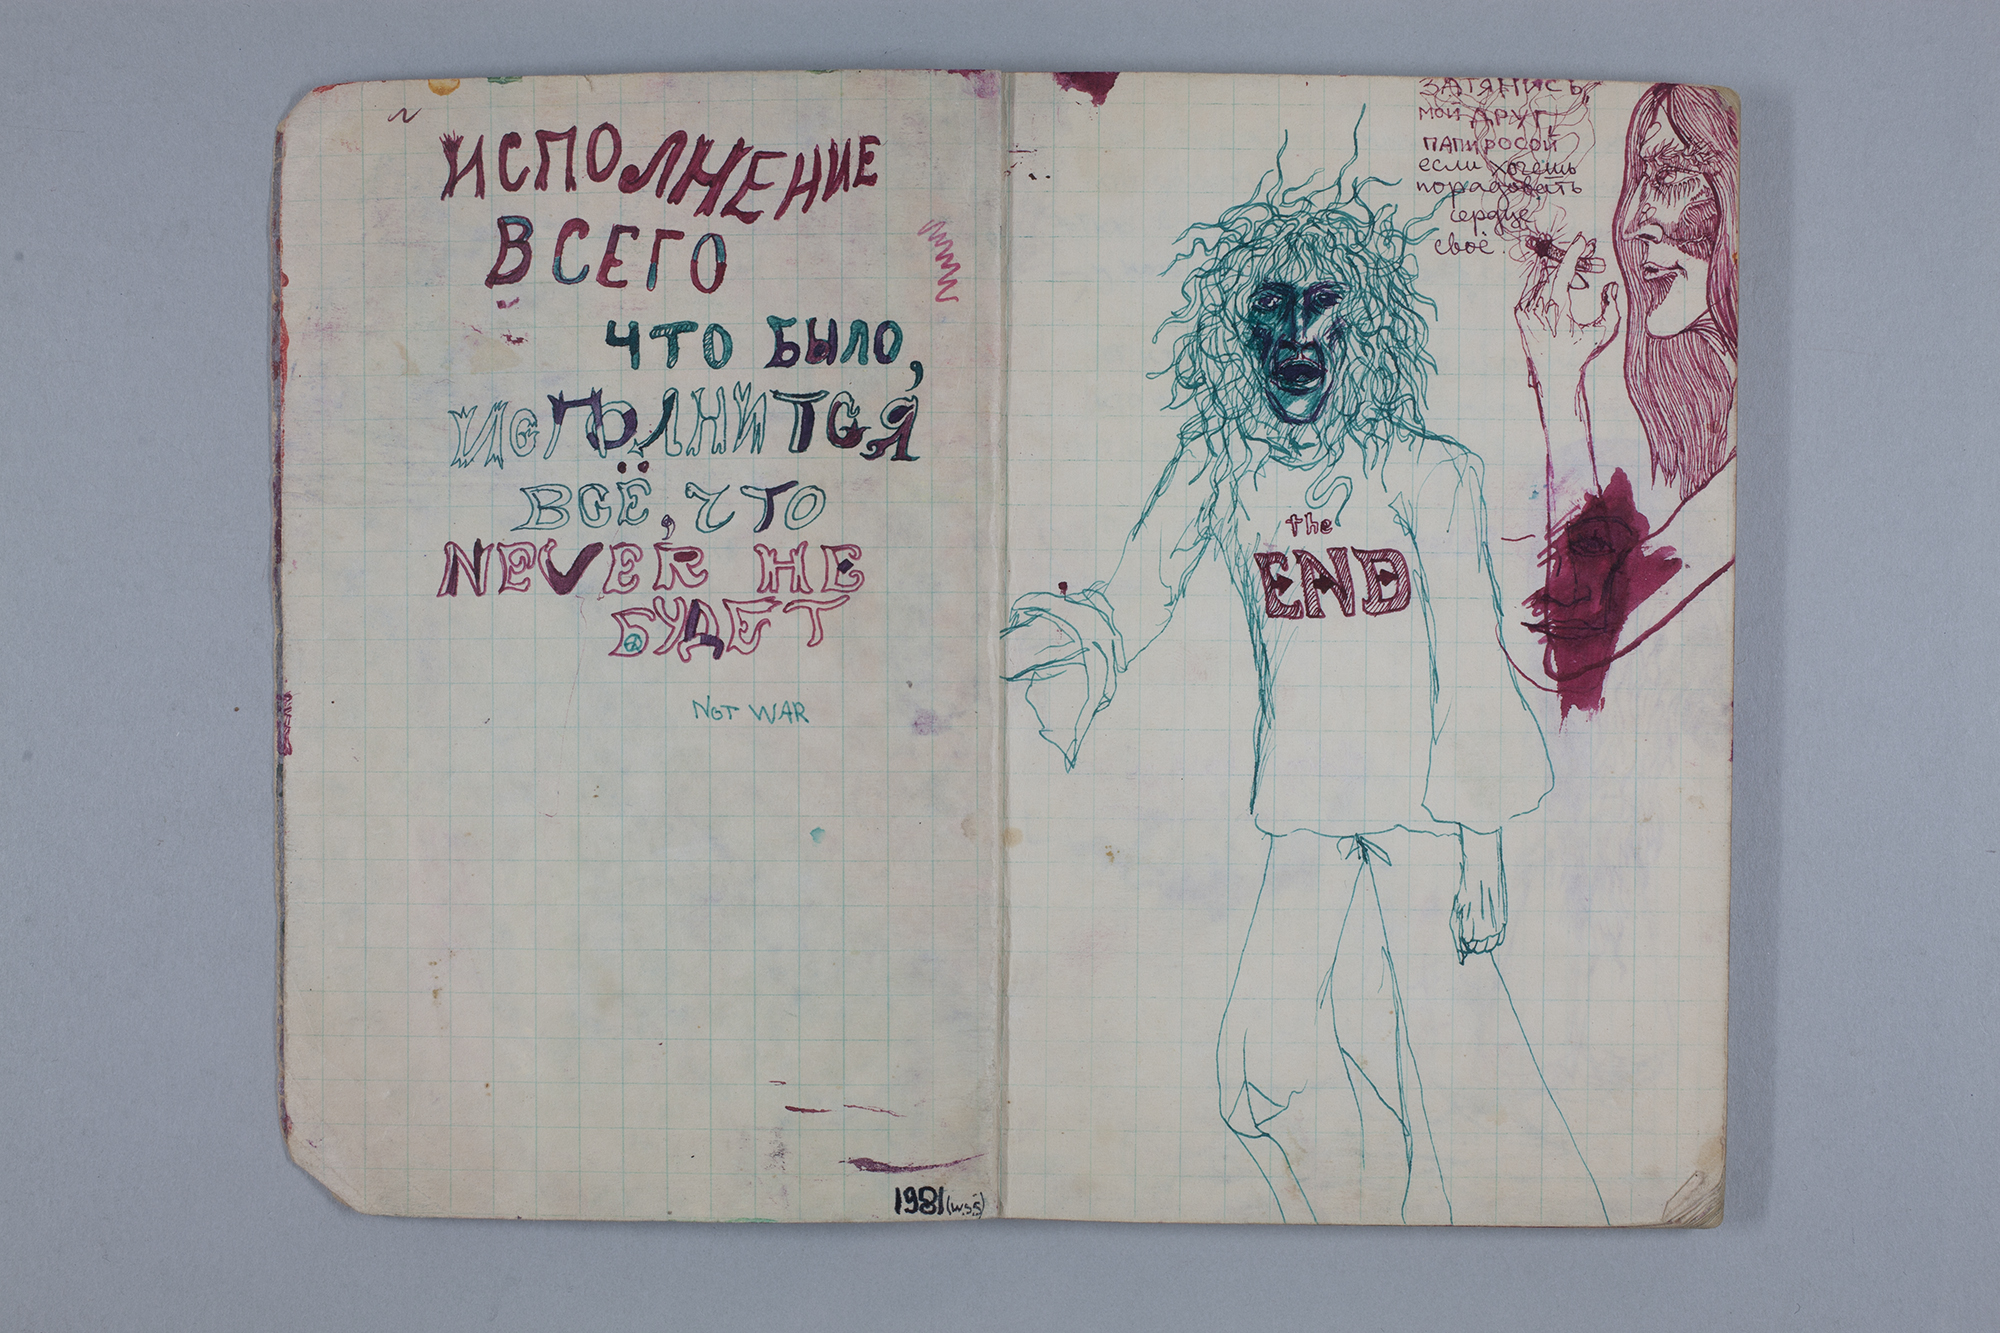 ИСПОЛНЕНИЕ
ВСЕГО
ЧТО БЫЛО,
ИСПОЛНИТСЯ
ВСЁ, ЧТО
NEVER НЕ
БУДЕТ
NOT WAR
1981 (w.s.s)
ЗАТЯНИСЬ,
МОЙ ДРУГ,
ПАПИРОСОЙ
если хочешь
порадовать
сердце
своё.
the
END